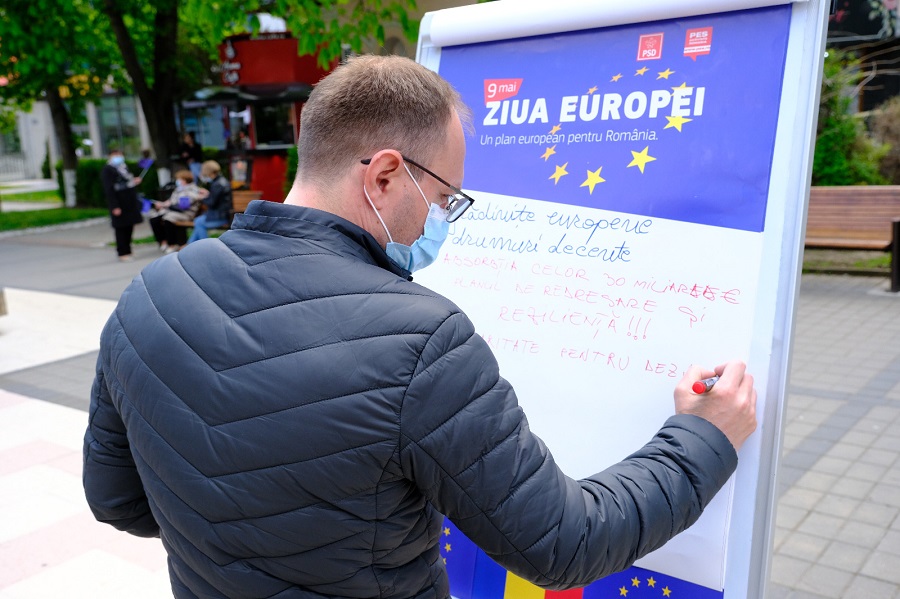 PSD
PES
9 mai
ZIUA EUROPEI
Un plan european pentru România.
europene
drumuri decente
ABSORBȚIA CELOR 30 MILIARDE €
PLANUL DE REDRESARE ȘI
REZILIENȚĂ!!!
PENTRU